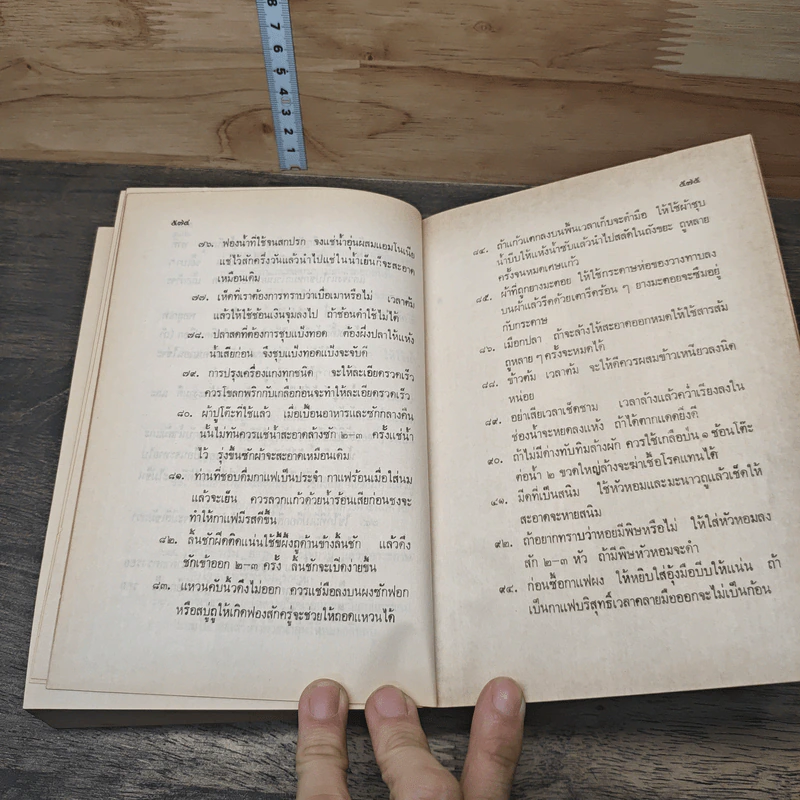 8 7 6 5 4 3 2 1
๕๗๔
๗๖. ฟองน้ำที่ใช้จนสกปรก จงแช่น้ำอุ่นผสมแอมโมเนีย
แช่ไว้สักครึ่งวันแล้วนำไปแช่ในน้ำเย็นก็จะสะอาด
เหมือนเดิม
๗๗. เห็ดที่เราต้องการทราบว่าเบื่อเมาหรือไม่ เวลาต้ม
แล้วให้ใช้ช้อนเงินจุ่มลงไป ถ้าช้อนดำใช้ไม่ได้
๗๘. ปลาสดที่ต้องการชุบแป้งทอด ต้องผึ่งปลาให้แห้ง
น้ำเสียก่อน จึงชุบแป้งทอดแป้งจะจับดี
๗๙. การปรุงเครื่องแกงทุกชนิด จะให้ละเอียดรวดเร็ว
ควรโขลกพริกกับเกลือก่อนจะทำให้ละเอียดรวดเร็ว
๘๐. ผ้าปูโต๊ะที่ใช้แล้ว เมื่อเปื้อนอาหารและซักกลางคืน
นั้นไม่ทันควรแช่น้ำสะอาดล้างซัก ๒-๓ ครั้งแช่น้ำ
ไว้ รุ่งขึ้นซักผ้าจะสะอาดเหมือนเดิม
๘๑. ท่านที่ชอบดื่มกาแฟเป็นประจำ กาแฟร้อนเมื่อใส่นม
แล้วจะเย็น ควรลวกแก้วด้วยน้ำร้อนเสียก่อนชงจะ
ทำให้กาแฟมีรสดีขึ้น
๘๒. ลิ้นชักฝืดติดแน่นใช้ขี้ผึ้งถูด้านข้างลิ้นชัก แล้วดึง
ชักเข้าออก ๒-๓ ครั้ง ลิ้นชักจะเปิดง่ายขึ้น
๘๓. แหวนคับนิ้วดึงไม่ออก ควรแช่มือลงบนผงซักฟอก
หรือสบู่ถูให้เกิดฟองสักครู่จะช่วยให้ถอดแหวนได้
๕๗๕
๘๔. ถ้าแก้วแตกลงบนพื้นเวลาเก็บจะตำมือ ให้ใช้ผ้าชุบ
น้ำบีบให้แห้งน้ำซับแล้วนำไปสลัดในถังขยะ ถูหลาย
ครั้งจนหมดเศษแก้ว
๘๕. ผ้าที่ถูกยางมะตอย ให้ใช้กระดาษห่อของวางทาบลง
บนผ้าแล้วรีดด้วยเตารีดร้อน ๆ ยางมะตอยจะซึมอยู่
กับกระดาษ
๘๖. เมือกปลา ถ้าจะล้างให้สะอาดออกหมดให้ใช้สารส้ม
ถูหลาย ๆ ครั้งจะหมดได้
๘๘. ข้าวต้ม เวลาต้ม จะให้ดีควรผสมข้าวเหนียวลงนิด
หน่อย
๘๙. อย่าเสียเวลาเช็ดชาม เวลาล้างแล้วคว่ำเรียงลงใน
ช่องน้ำจะหยดลงแห้ง ถ้าได้ตากแดดยิ่งดี
๙๐. ถ้าไม่มีด่างทับทิมล้างผัก ควรใช้เกลือป่น ๑ ช้อนโต๊ะ
ต่อน้ำ ๒ ขวดใหญ่ล้างจะฆ่าเชื้อโรคแทนได้
๔๑. มีดที่เป็นสนิม ใช้หัวหอมและมะนาวถูแล้วเช็ดให้
สะอาดจะหายสนิม
๙๒. ถ้าอยากทราบว่าหอยมีพิษหรือไม่ ให้ใส่หัวหอมลง
สัก ๒-๓ หัว ถ้ามีพิษหัวหอมจะดำ
๙๔. ก่อนซื้อกาแฟผง ให้หยิบใส่อุ้งมือบีบให้แน่น ถ้า
เป็นกาแฟบริสุทธิ์เวลาคลายมือออกจะไม่เป็นก้อน